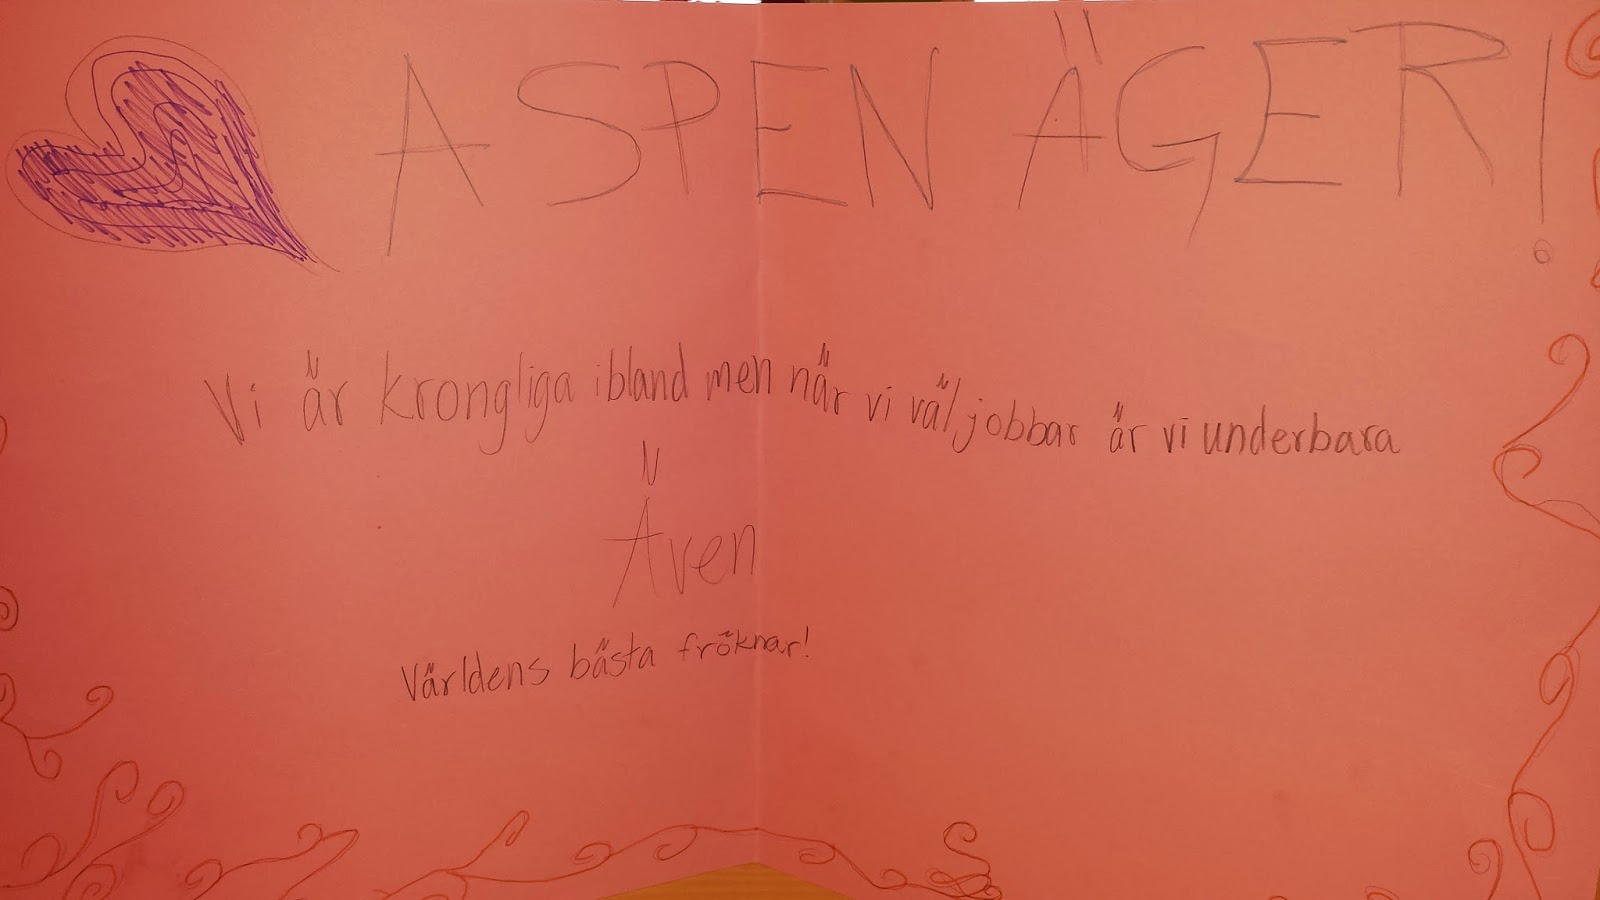 ASPEN ÄGER!
Vi är krongliga ibland men när vi väl jobbar är vi underbara
Även
Världens bästa fröknar!